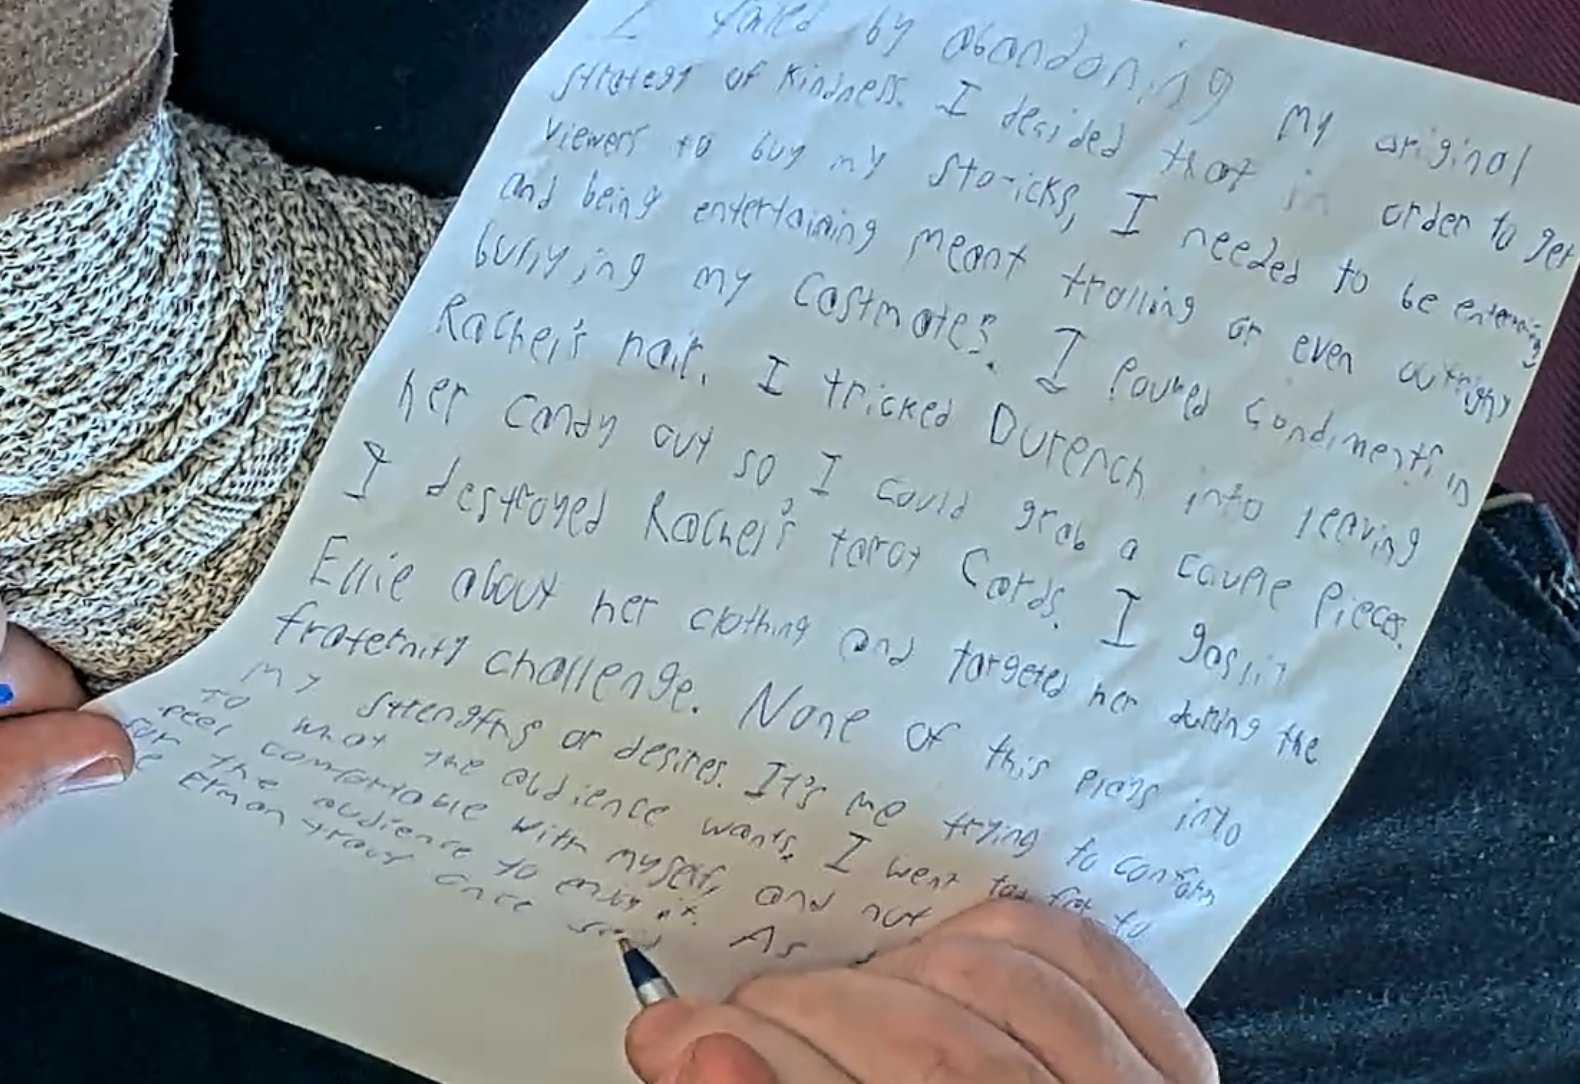 I failed by abandoning my original
strategy of kindness. I decided that in order to get
viewers to buy my storicks, I needed to be
and being entertaining meant trolling or even outright
bullying my castmates. I poured condiments in
Rachel's hair. I tricked Durench into leaving
her candy out so I could grab a couple pieces.
I destroyed Rachel's tarot cards. I gossip
Ellie about her clothing and targeted her during the
fraternity challenge. None of this plays into
my strengths or desires. It's me trying to conform
to what the audience wants. I went too far to
feel comfortable with myself, and not
for the audience to enjoy it. As
Elman tracy once said